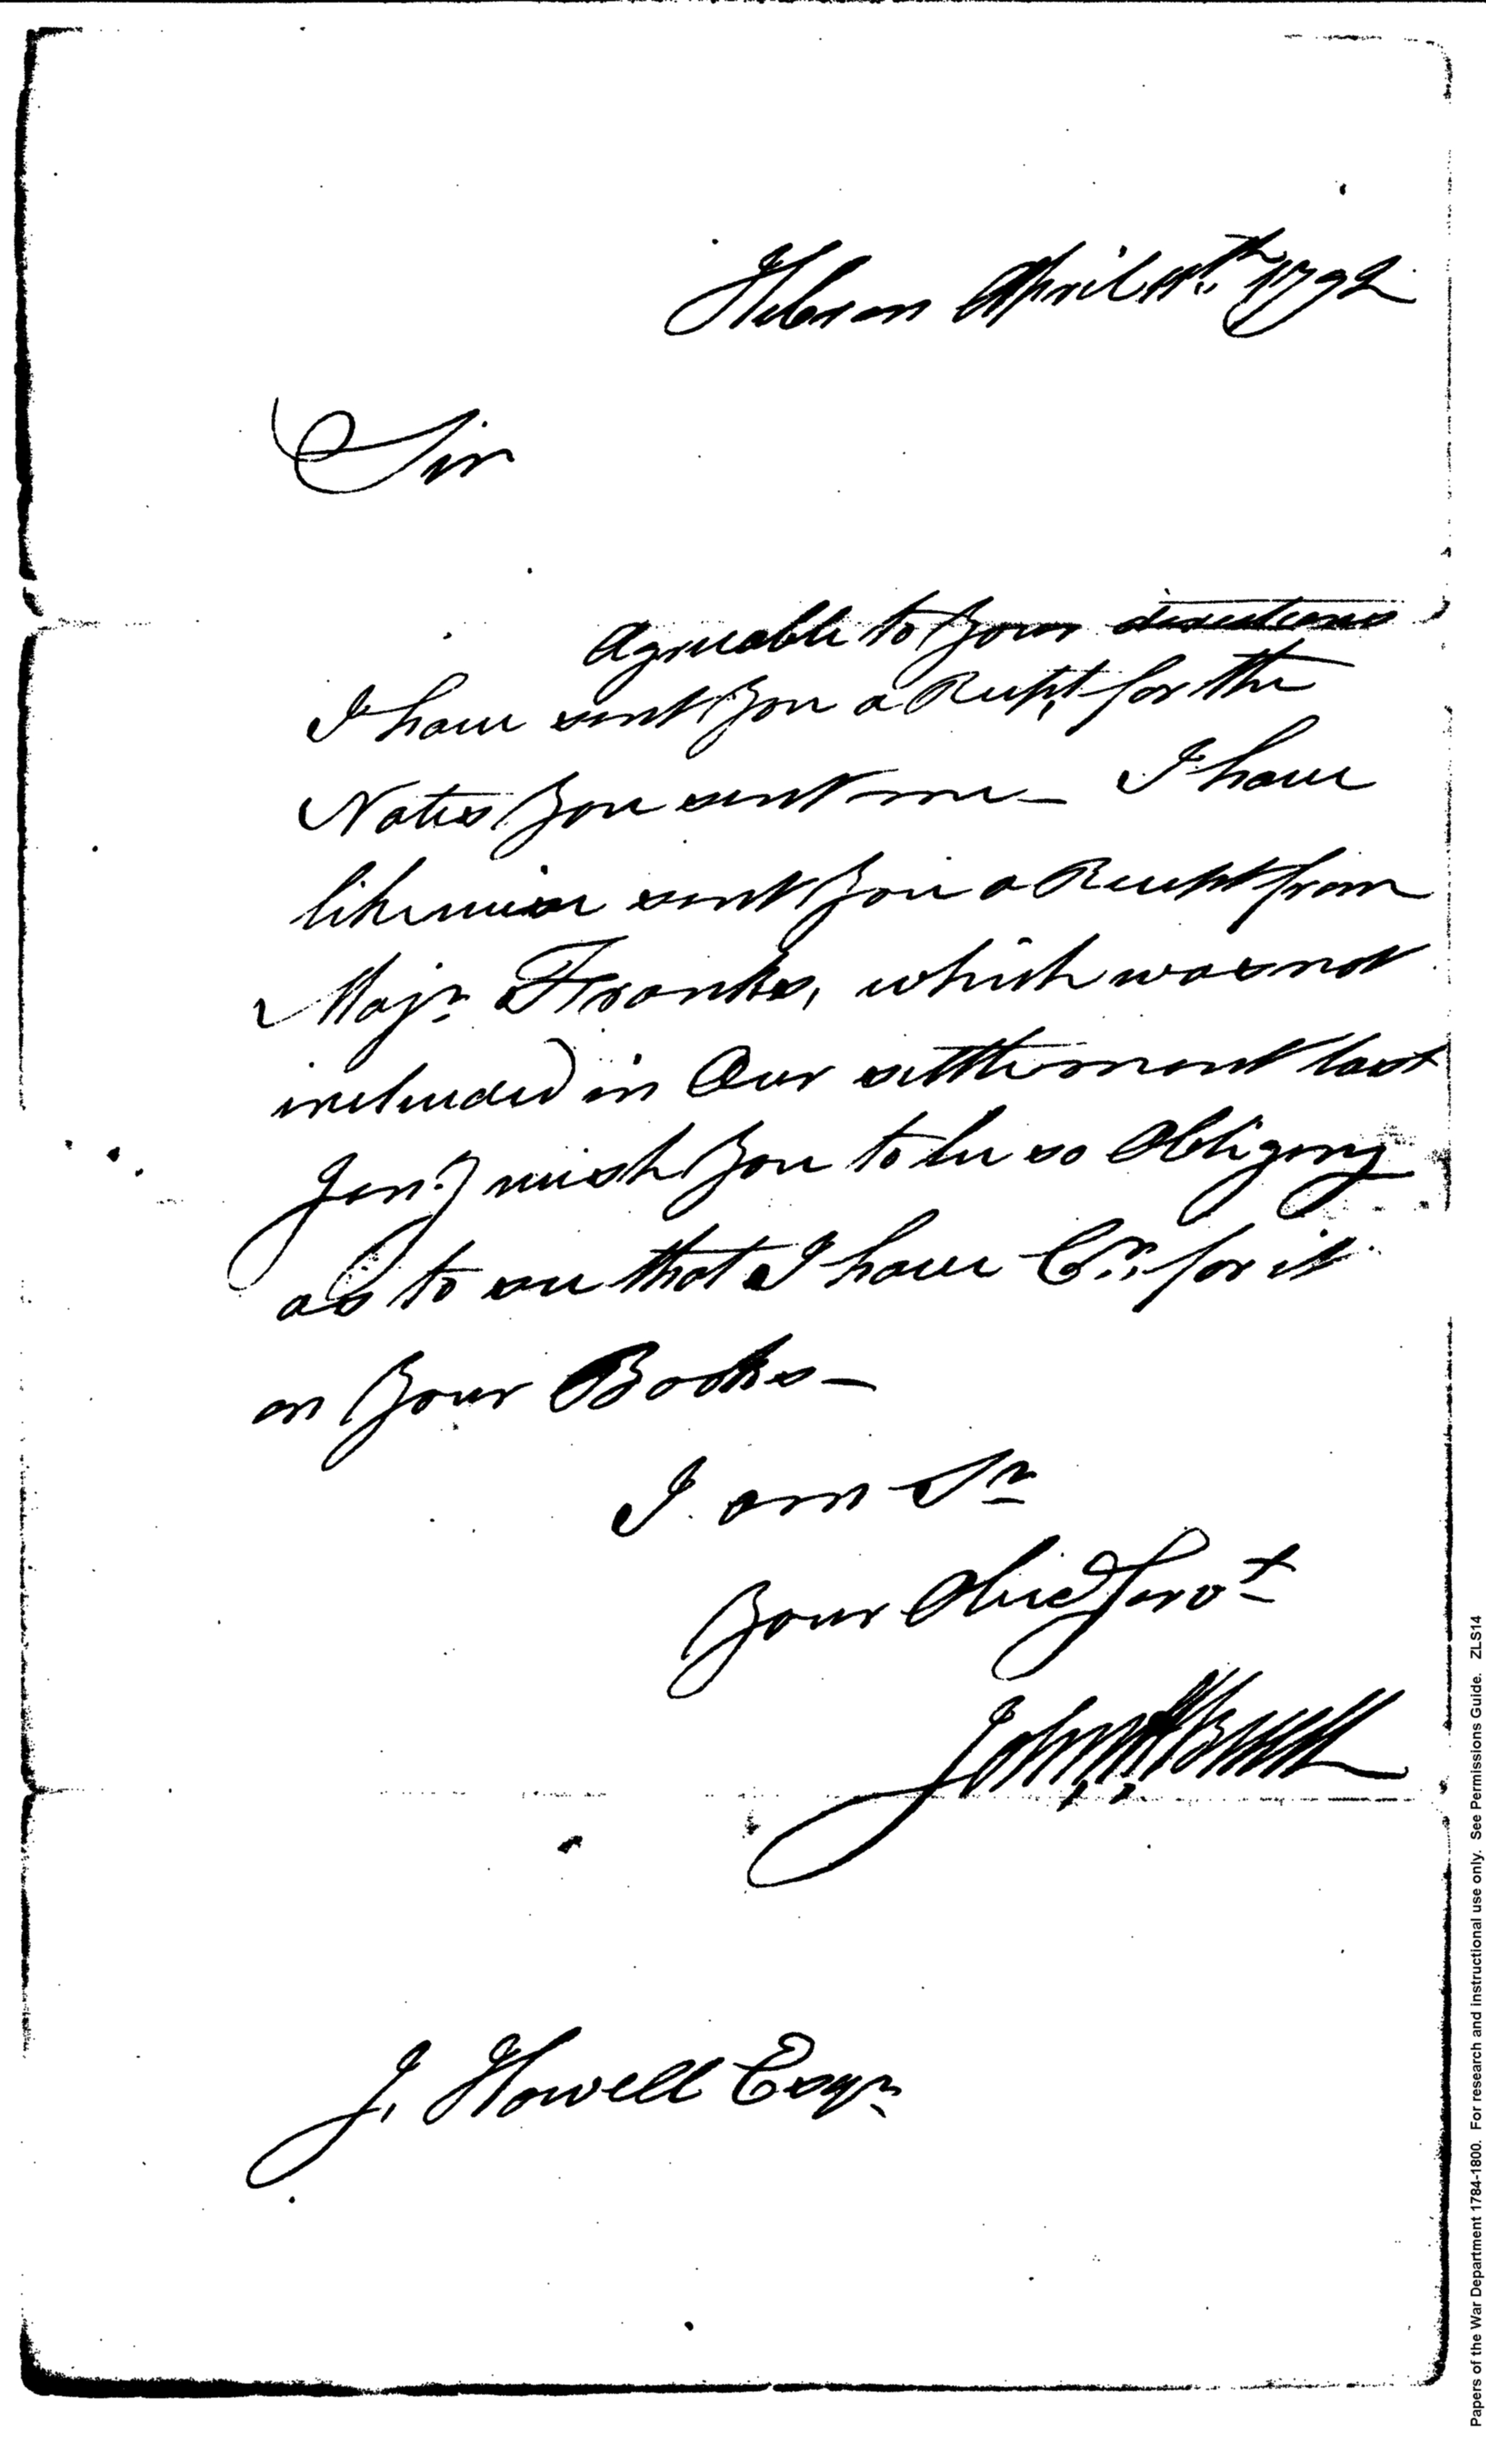 Hebron April 11th 1792
Sir
Agreeable to Your directions
I have sent You a Recpt, for the
Notes You sent me – I have
likewise sent You a Receipt from
Majr Franks, which was not
included in Our settlement last
Jany wish You to be so Obliging
as to see that I have Cr. for it
on Your Books –
I am Sr
Your Obed Servt
John
J. Howell Esqr
Papers of the War Department 1784-1800. For research and instructional use only. See Permissions Guide. ZLS14